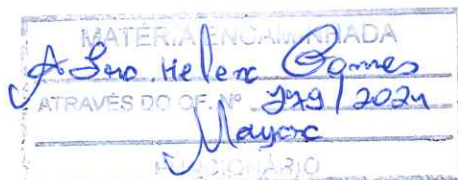 MATÉRIA ENCAMINHADA
A Sra. Helena Gomes
ATRAVÉS DO OF. Nº 279/2024
Mayara
FUNCIONÁRIO